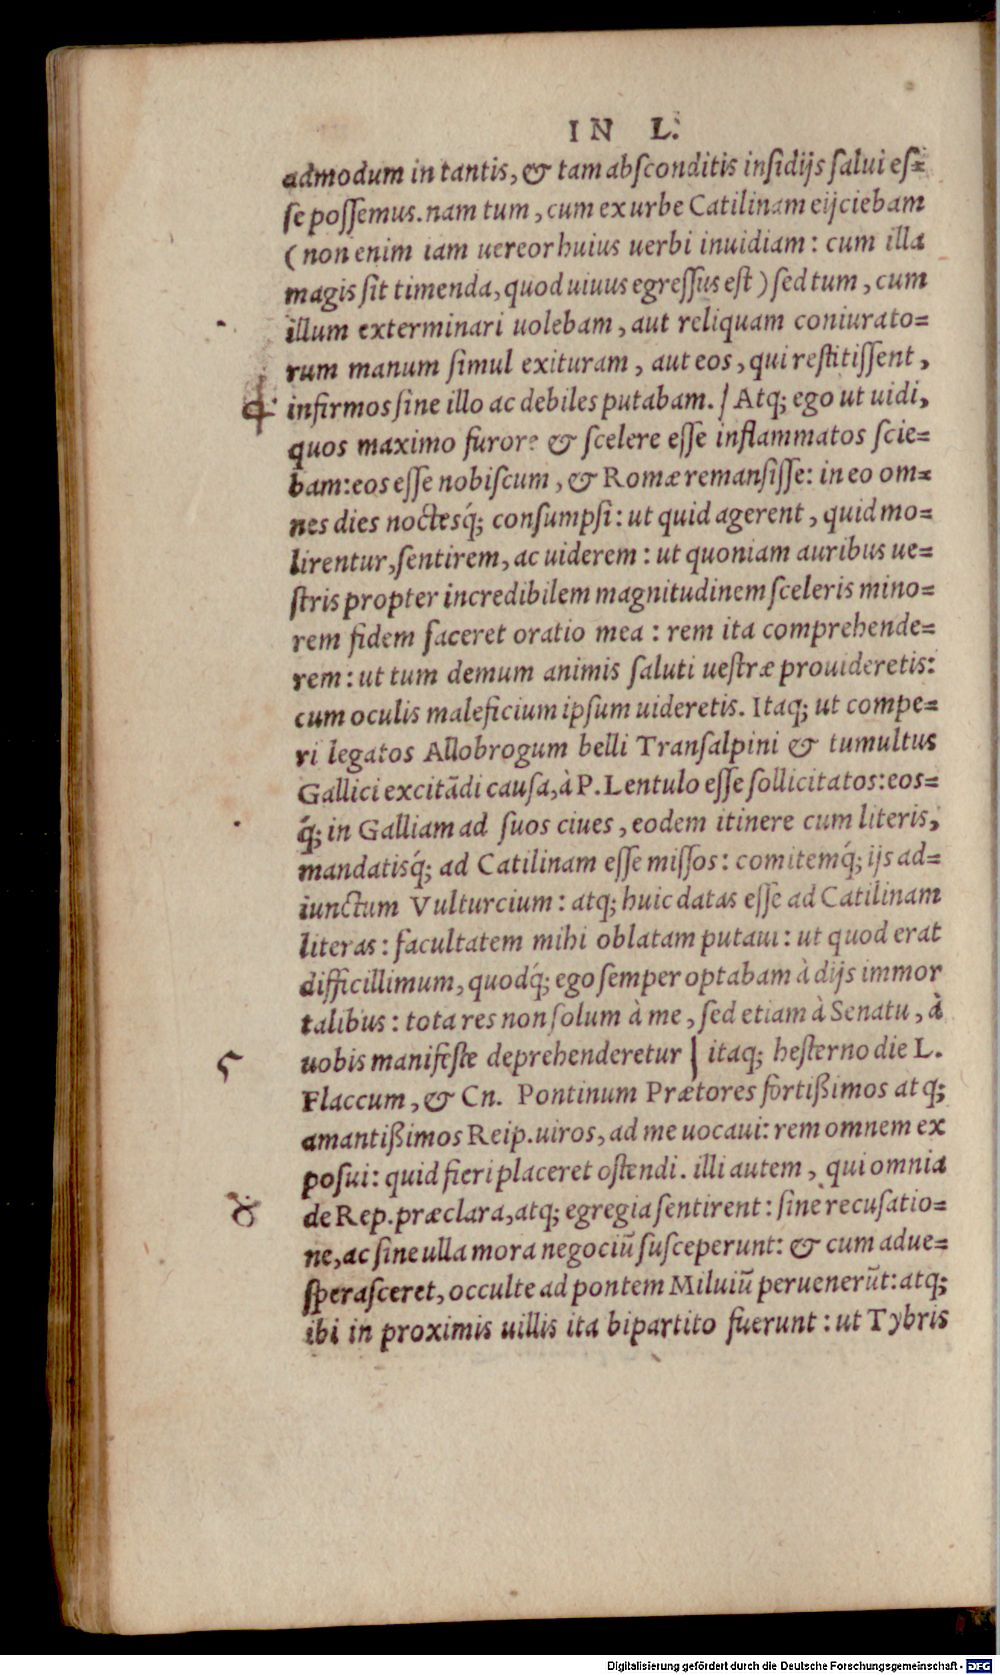 IN L.
admodum in tantis, & tam absconditis insidijs salui es=
se possemus. nam tum, cum ex urbe Catilinam eijciebam
(non enim iam uereor huius uerbi inuidiam: cum illa
magis sit timenda, quod uiuus egressus est) sed tum, cum
illum exterminari uolebam, aut reliquam coniurato=
rum manum simul exituram, aut eos, qui restitissent,
infirmos sine illo ac debiles putabam. / Atq; ego ut uidi,
quos maximo furore & scelere esse inflammatos scie=
bam: eos esse nobiscum, & Romæ remansisse: in eo om=
nes dies noctesq́; consumpsi: ut quid agerent, quid mo=
lirentur, sentirem, ac uiderem: ut quoniam auribus ue=
stris propter incredibilem magnitudinem sceleris mino=
rem fidem faceret oratio mea: rem ita comprehende=
rem: ut tum demum animis saluti uestræ prouideretis:
cum oculis maleficium ipsum uideretis. Itaq; ut compe=
ri legatos Allobrogum belli Transalpini & tumultus
Gallici excitādi causa, à P. Lentulo esse sollicitatos: eos=
q́; in Galliam ad suos ciues, eodem itinere cum literis,
mandatisq́; ad Catilinam esse missos: comitemq́; ijs ad=
iunctum Vulturcium: atq; huic datas esse ad Catilinam
literas: facultatem mihi oblatam putaui: ut quod erat
difficillimum, quodq́; ego semper optabam à dijs immor
talibus: tota res non solum à me, sed etiam à Senatu, à
uobis manifeste deprehenderetur / itaq; hesterno die L.
Flaccum, & Cn. Pontinum Prætores fortißimos atq;
amantißimos Reip. uiros, ad me uocaui: rem omnem ex
posui: quid fieri placeret ostendi. illi autem, qui omnia
de Rep. præclara, atq; egregia sentirent: sine recusatio=
ne, ac sine ulla mora negociū susceperunt: & cum adue=
sperasceret, occulte ad pontem Miluiū peruenerūt: atq;
ibi in proximis uillis ita bipartito fuerunt: ut Tybris
Digitalisierung gefördert durch die Deutsche Forschungsgemeinschaft - DFG